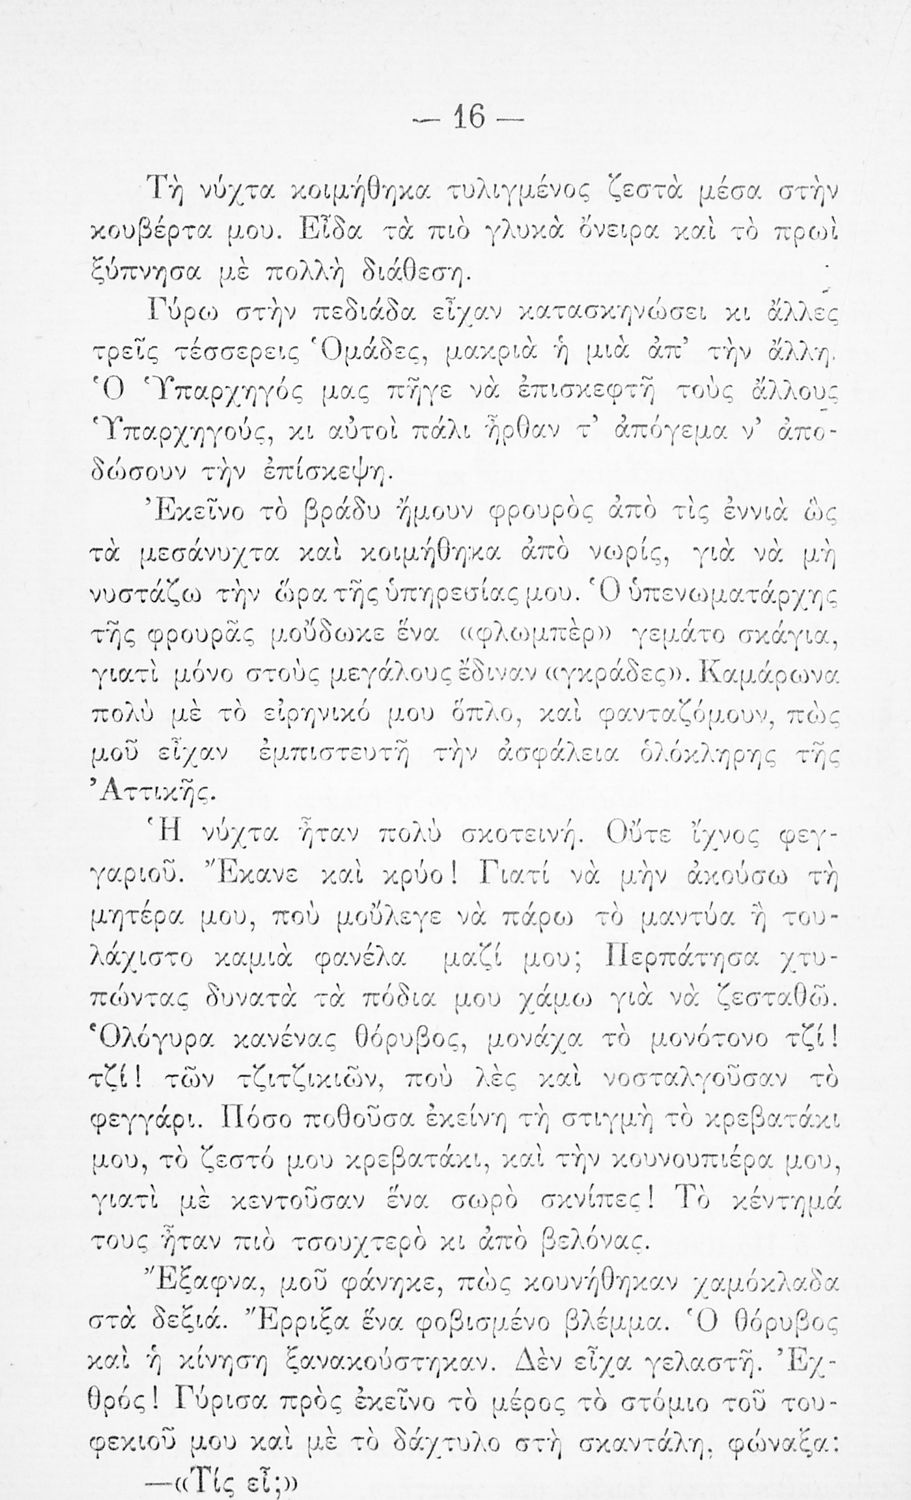 — 16 —
Τὴ νύχτα κοιμήθηκα τυλιγμένος ζεστὰ μέσα στὴν
κουβέρτα μου. Εἶδα τὰ πιὸ γλυκὰ ὄνειρα καὶ τὸ πρωὶ
ξύπνησα μὲ πολλὴ διάθεση.
Γύρω στὴν πεδιάδα εἶχαν κατασκηνώσει κι ἄλλες
τρεῖς τέσσερεις Ὁμάδες, μακριὰ ἡ μιὰ ἀπ’ τὴν ἄλλη.
Ὁ Ὑπαρχηγός μας πῆγε νὰ ἐπισκεφτῆ τοὺς ἄλλους
Ὑπαρχηγούς, κι αὐτοὶ πάλι ἦρθαν τ’ ἀπόγεμα ν’ ἀπο-
δώσουν τὴν ἐπίσκεψη.
Ἐκεῖνο τὸ βράδυ ἤμουν φρουρὸς ἀπὸ τὶς ἐννιὰ ὣς
τὰ μεσάνυχτα καὶ κοιμήθηκα ἀπὸ νωρίς, γιὰ νὰ μὴ
νυστάζω τὴν ὥρα τῆς ὑπηρεσίας μου. Ὁ ὑπενωματάρχης
τῆς φρουρᾶς μοὔδωκε ἕνα «φλωμπὲρ» γεμάτο σκάγια,
γιατὶ μόνο στοὺς μεγάλους ἔδιναν «γκράδες». Καμάρωνα
πολὺ μὲ τὸ εἰρηνικό μου ὅπλο, καὶ φανταζόμουν, πὼς
μοῦ εἶχαν ἐμπιστευτῆ τὴν ἀσφάλεια ὁλόκληρης τῆς
Ἀττικῆς.
Ἡ νύχτα ἦταν πολὺ σκοτεινή. Οὔτε ἴχνος φεγ-
γαριοῦ. Ἔκανε καὶ κρύο! Γιατί νὰ μὴν ἀκούσω τὴ
μητέρα μου, ποὺ μοὔλεγε νὰ πάρω τὸ μαντύα ἢ του-
λάχιστο καμιὰ φανέλα μαζί μου; Περπάτησα χτυ-
πώντας δυνατὰ τὰ πόδια μου χάμω γιὰ νὰ ζεσταθῶ.
Ὁλόγυρα κανένας θόρυβος, μονάχα τὸ μονότονο τζί!
τζί! τῶν τζιτζικιῶν, ποὺ λὲς καὶ νοσταλγοῦσαν τὸ
φεγγάρι. Πόσο ποθοῦσα ἐκείνη τὴ στιγμὴ τὸ κρεβατάκι
μου, τὸ ζεστό μου κρεβατάκι, καὶ τὴν κουνουπιέρα μου,
γιατὶ μὲ κεντοῦσαν ἕνα σωρὸ σκνίπες! Τὸ κέντημά
τους ἦταν πιὸ τσουχτερὸ κι ἀπὸ βελόνας.
Ἔξαφνα, μοῦ φάνηκε, πὼς κουνήθηκαν χαμόκλαδα
στὰ δεξιά. Ἔρριξα ἕνα φοβισμένο βλέμμα. Ὁ θόρυβος
καὶ ἡ κίνηση ξανακούστηκαν. Δὲν εἶχα γελαστῆ. Ἐχ-
θρός! Γύρισα πρὸς ἐκεῖνο τὸ μέρος τὸ στόμιο τοῦ του-
φεκιοῦ μου καὶ μὲ τὸ δάχτυλο στὴ σκαντάλη, φώναξα:
—«Τίς εἶ;»